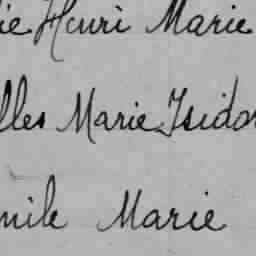 ie Henri Marie
lles Marie Isidor
mile Marie